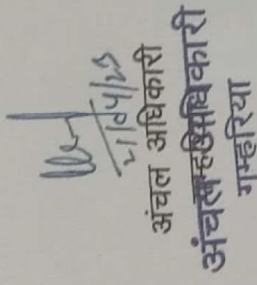 21/04/25
अंचल अधिकारी
अधिकारी
गम्हरिया